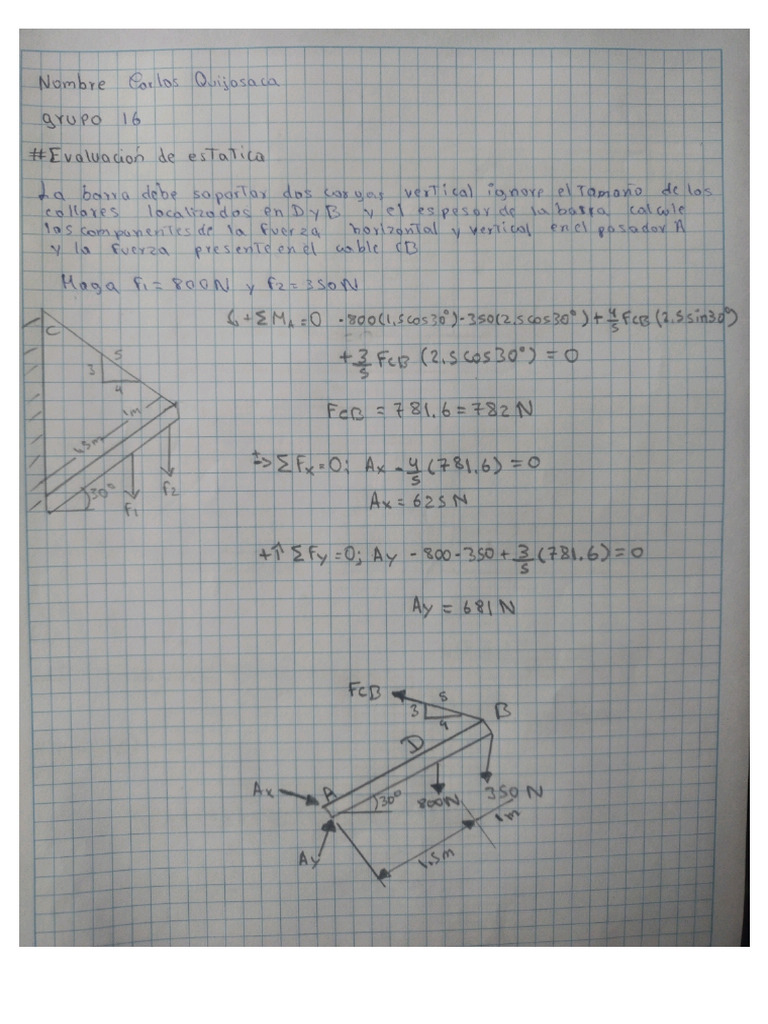 Nombre Carlos Quijosaca
grupo 16
#Evaluación de estatica
La barra debe soportar dos cargas vertical ignore el Tamaño de los
collares localizados en D y B y el espesor de la barra calcule
las componentes de la fuerza horizontal y vertical en el pasador A
y la fuerza presente en el cable CB
Haga F1 = 800N y F2 = 350N
↺ + ΣMA = 0 -800(1,5cos30°) - 350(2.5cos30°) + 4/5 FCB (2.5sin30°)
+ 3/5 FCB (2.5cos30°) = 0
FCB = 781.6 = 782N
C
5
3
4
1m
1.5m
30°
F1
F2
±> ΣFx = 0; Ax - 4/5 (781.6) = 0
Ax = 625N
+↑ ΣFy = 0; Ay - 800 - 350 + 3/5 (781.6) = 0
Ay = 681N
FCB
5
3
4
B
D
Ax
A
30°
800N
350N
1m
1.5m
Ay